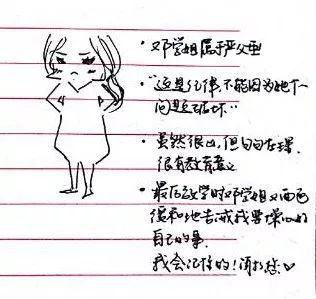 ·邓学姐属于严父型
·"这是纪律,不能因为她一
问题破坏…"
·虽然很凶,但句句在理,
很有教育意义
·最后放学时邓学姐又面色
缓和地告诫我要操心好
自己的事.
我会记住的!谢谢您♡